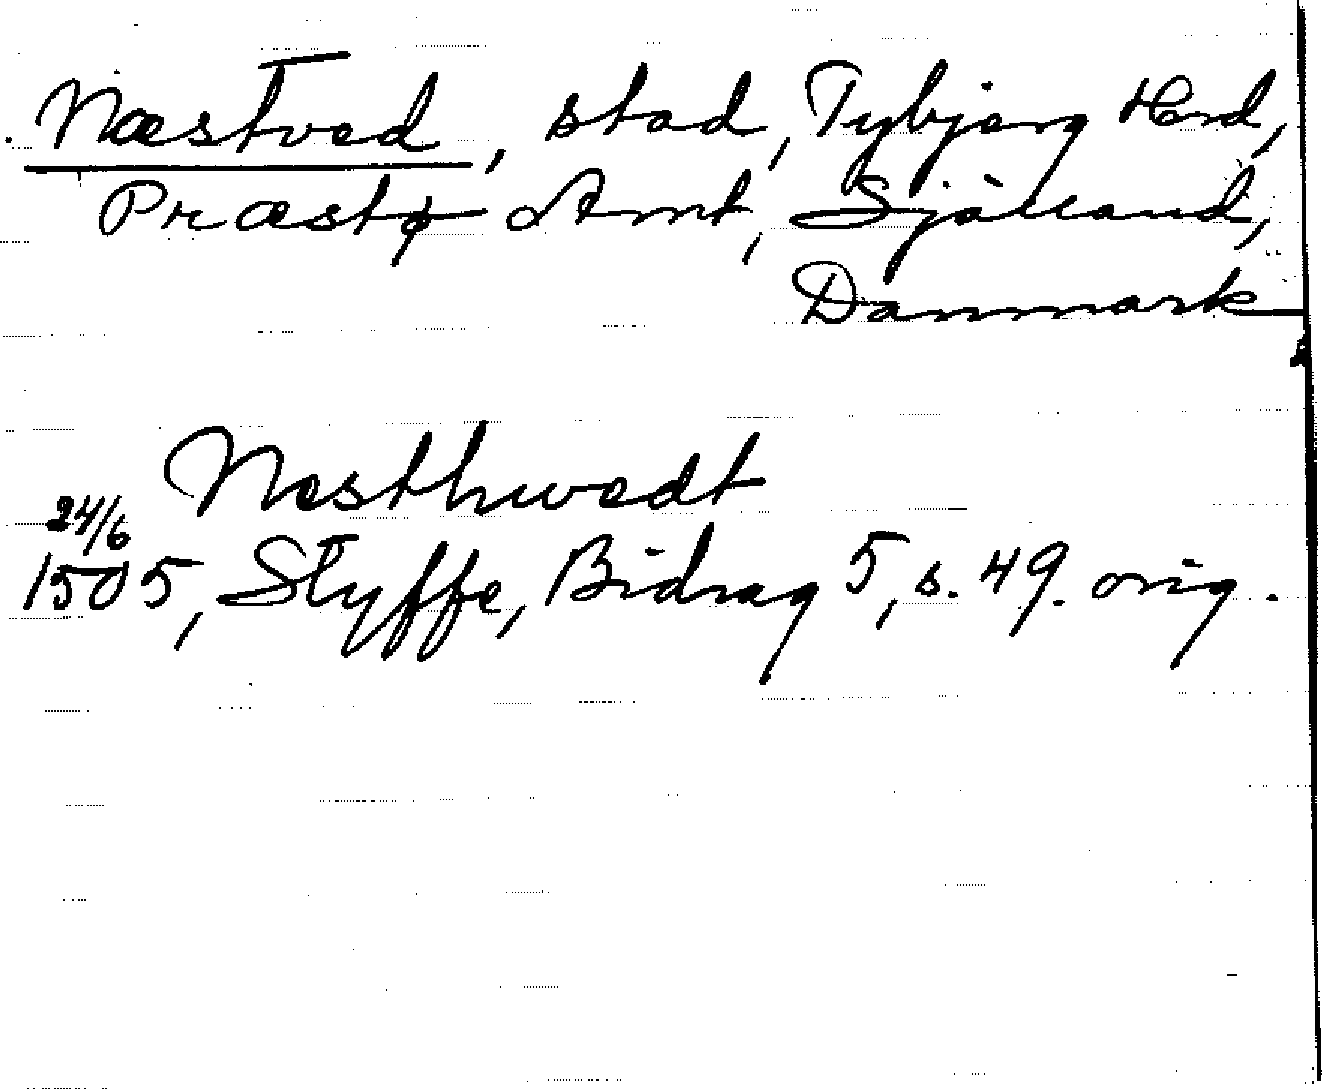 Næstved, stad, Tybjärg Hrd,
Præstø Amt, Själland,
Danmark
Nesthwedt
24/6
1505, Styffe, Bidrag 5, s. 49. orig.